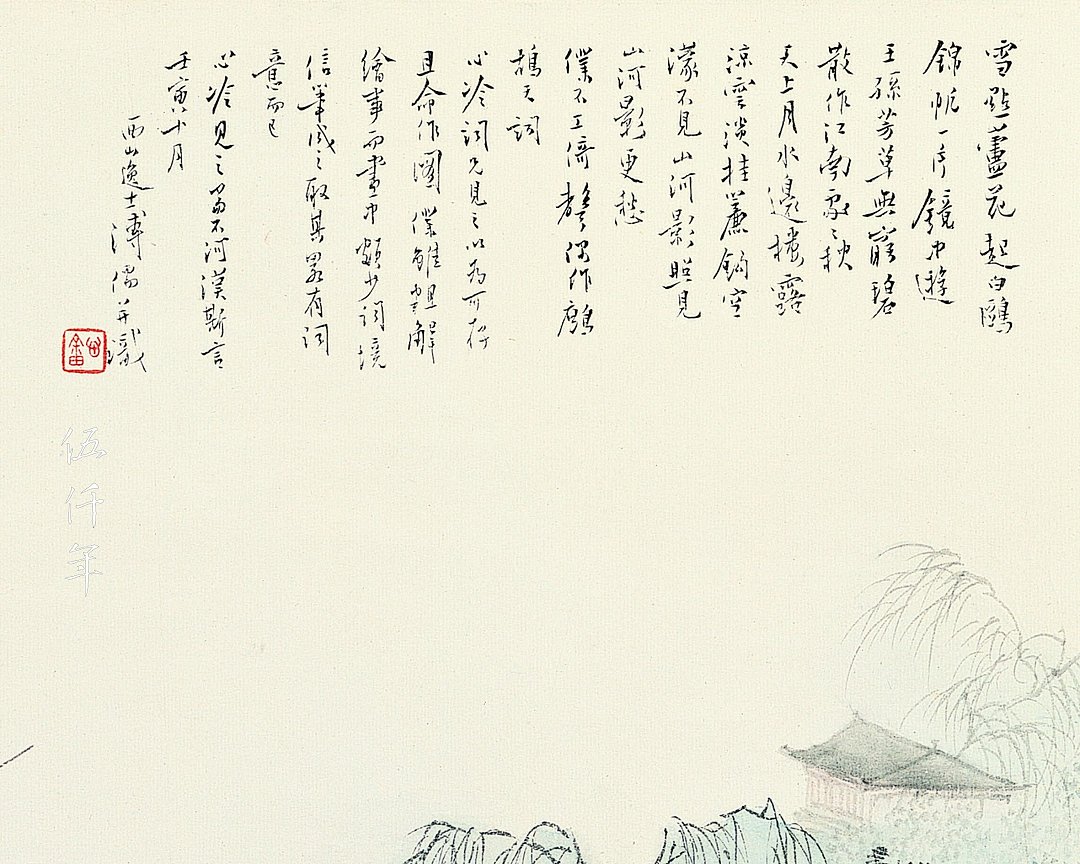 雪點蘆花起白鷗
錦帆一片鏡中遊
王孫芳草無窮碧
散作江南處〻秋
天上月水邊樓露
涼雲淡挂簾鉤空
濛不見山河影照見
山河影更愁
僕不工倚聲偶作鷓
鴣天詞
心冷詞兄見之以為可存
且命作圖僕雖粗解
繪事而畫中頗少詞境
信筆成之取其略有詞
意而已
心冷見之當不河漢斯言
壬寅十月
西山逸士溥儒并識
伍仟年